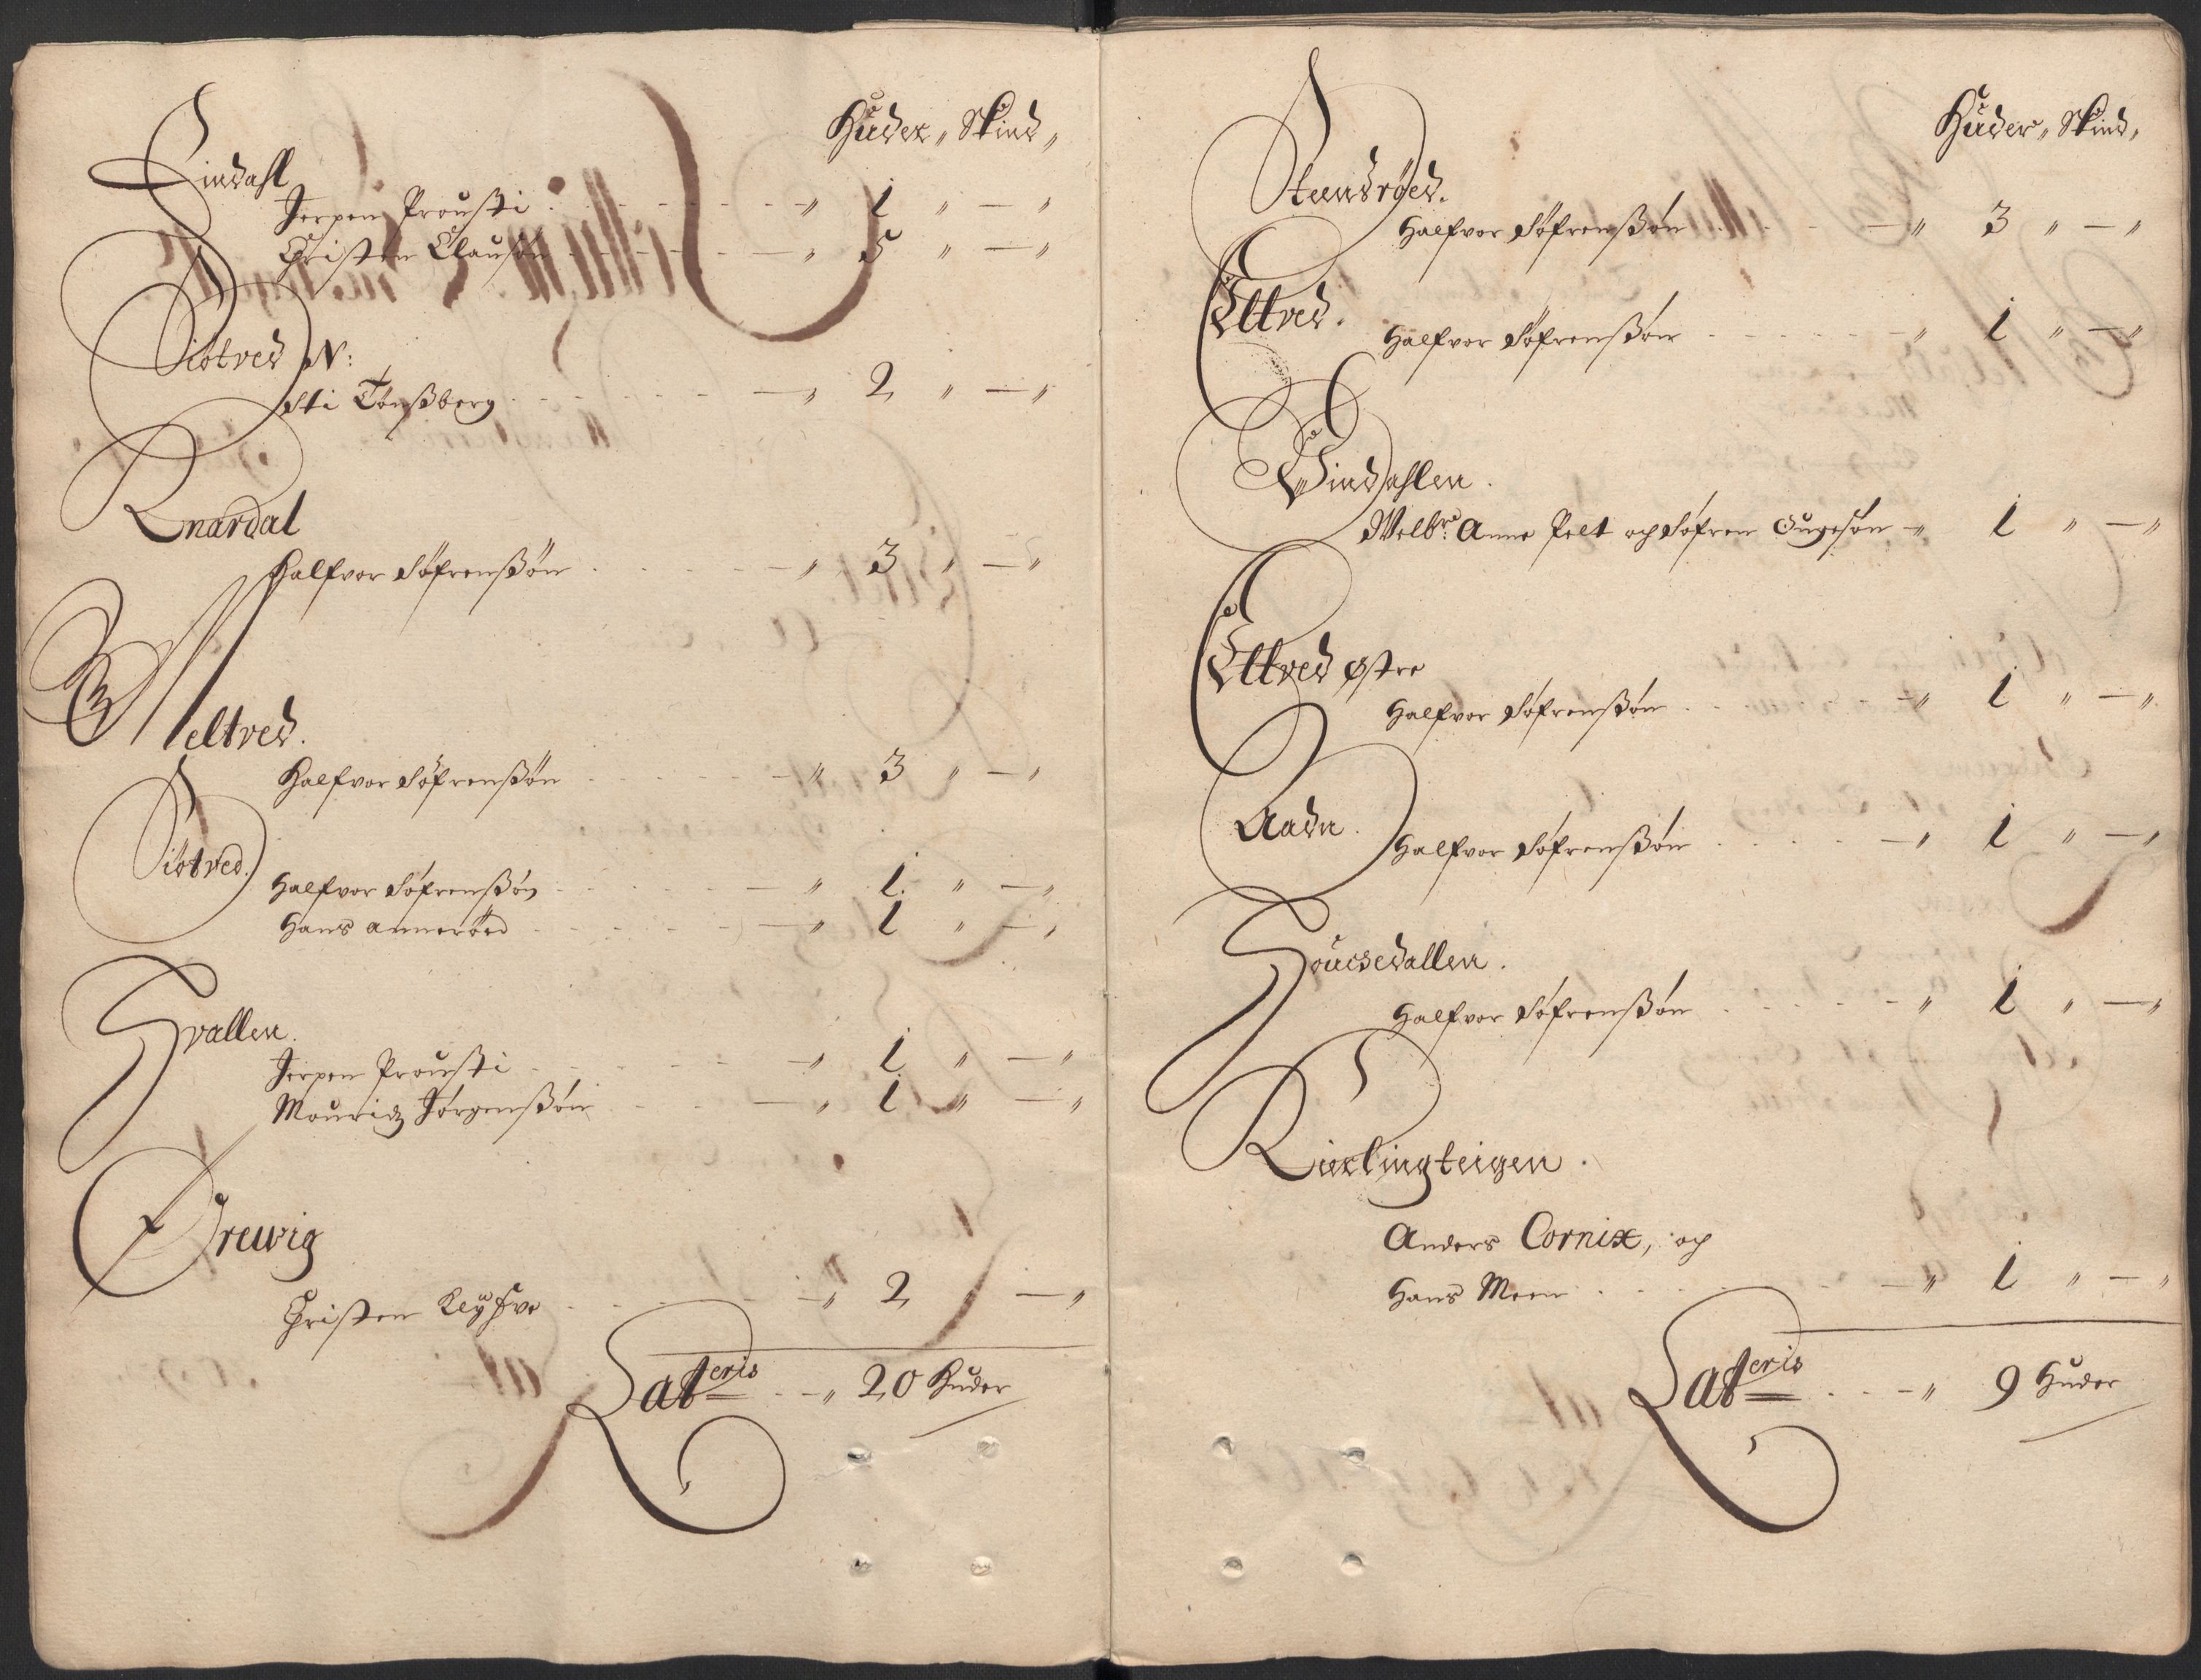 Huder „ Skind „
Lindahl
Jerpen Prousti . . . „ 1 „ — „
Christen Clausøn . . . „ 5 „ — „
Siøtved N:
Sti Tønsberg . . . „ 2 „ — „
Knardal
Halfvor Søfrensøn . . . „ 3 „ — „
Meltved.
Halfvor Søfrensøn . . . „ 3 „ — „
Siøtved.
Halfvor Søfrensøn . . . „ 1 „ — „
Hans annerøed . . . „ 1 „ — „
Hvallen.
Jerpen Prousti . . . „ 1 „ — „
Mouridz Jørgensøn . . . „ 1 „ — „
Ørewig
Christen Leÿfve . . . „ 2 — „
Lateris . . „ 20 Huder
Huder „ Skind „
Steensrøed.
Halfvor Søfrensøn . . . „ 3 „ — „
Eltved.
Halfvor Søfrensøn . . . „ 1 „ — „
Vindahlen.
Welbr: Anne Pelt och Søfren Gugesøn „ 1 „ — „
Eltved østre
Halfvor Søfrensøn . . . „ 1 „ — „
Aadn.
Halfvor Søfrensøn . . . „ 1 „ — „
Halfvor Søfrensøn . . . „ 1 „ — „
Kierlingteigen.
Anders Cornix, och
Hans Meen . . . „ 1 „ — „
Lateris . . . „ 9 Huder